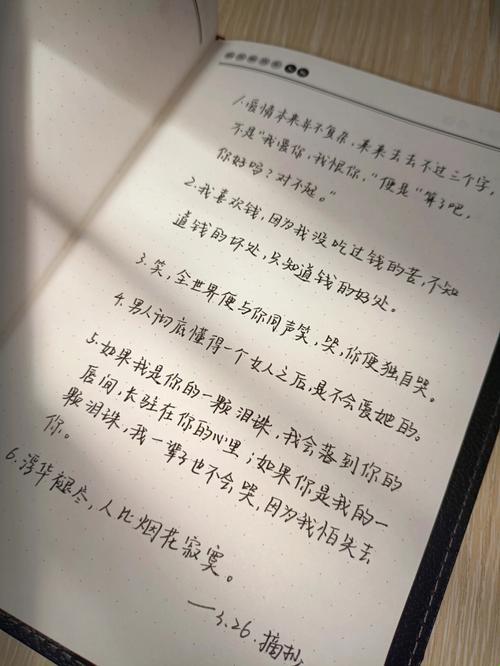 1.爱情本来并不复杂,来来去去不过三个字,
不是“我爱你,我恨你,”便是“算了吧,
你好吗?对不起。”
2.我喜欢钱,因为我没吃过钱的苦,不知
道钱的坏处,只知道钱的好处。
3.笑,全世界便与你同声笑,哭,你便独自哭。
4.男人彻底懂得一个女人之后,是不会爱她的。
5.如果我是你的一颗泪珠,我会落到你的
唇间,长驻在你的心里;如果你是我的一
颗泪珠,我一辈子也不会哭,因为我怕失去
你。
6.浮华褪尽,人比烟花寂寞。
——3.26.摘抄